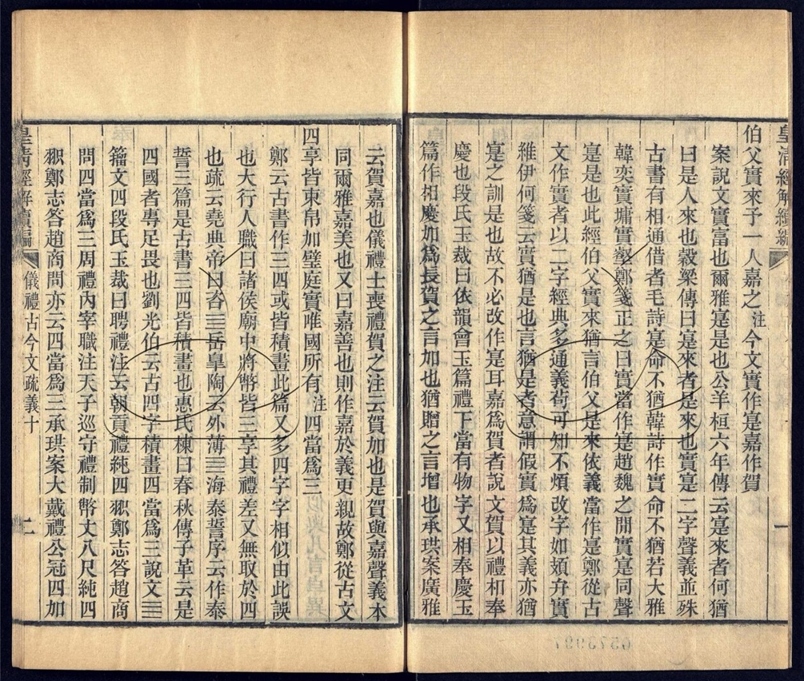 皇清經解續編
伯父實來予一人嘉之注今文實作寔嘉作賀
案說文實富也爾雅寔是也公羊桓六年傳云寔來者何猶
曰是人來也穀梁傳曰寔來者是來也實寔二字聲義並殊
古書有相通借者毛詩寔命不猶韓詩作實命不猶若大雅
韓奕實墉實壑鄭箋正之曰實當作寔趙魏之閒實寔同聲
寔是也此經伯父實來猶言伯父是來依義當作寔鄭從古
文作實者以二字經典多通義苟可知不煩改字如頍弁實
維伊何箋云實猶是也言猶是者意謂假實爲寔其義亦猶
寔之訓是也故不必改作寔耳嘉爲賀者說文賀以禮相奉
慶也段氏玉裁曰依韻會玉篇禮下當有物字又相奉慶玉
篇作相慶加爲長賀之言加也猶贈之言增也承珙案廣雅
一
云賀嘉也儀禮士喪禮賀之注云賀加也是賀與嘉聲義本
同爾雅嘉美也又曰嘉善也則作嘉於義更親故鄭從古文
四享皆束帛加璧庭實唯國所有注四當爲三
鄭云古書作三四或皆積畫此篇又多四字字相似由此誤
也大行人職曰諸侯廟中將幣皆三享其禮差又無取於四
也疏云堯典帝曰咨亖岳皐陶云外薄亖海泰誓序云作泰
誓三篇是古書三四皆積畫也惠氏棟曰春秋傳子革云是
四國者專足畏也劉光伯云古四字積畫四當爲三說文亖
籀文四段氏玉裁曰聘禮注云朝貢禮純四𥿄鄭志答趙商
問四當爲三周禮內宰職注天子巡守禮制幣丈八尺純四
𥿄鄭志答趙商問亦云四當爲三承珙案大戴禮公冠四加
皇清經解續編
儀禮古今文疏義十
二